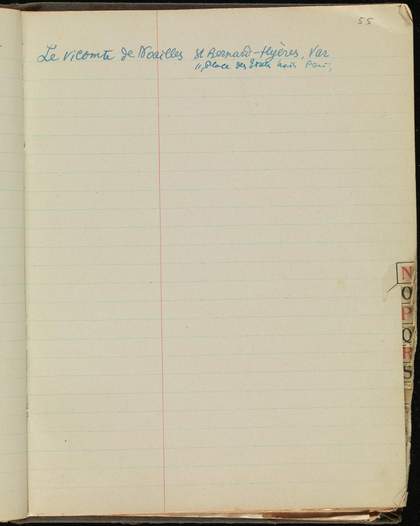 55
Le vicomte de Noailles St Bernard-Hyères, Var
11, place des États Unis Paris,
N
O
P
Q
R
S